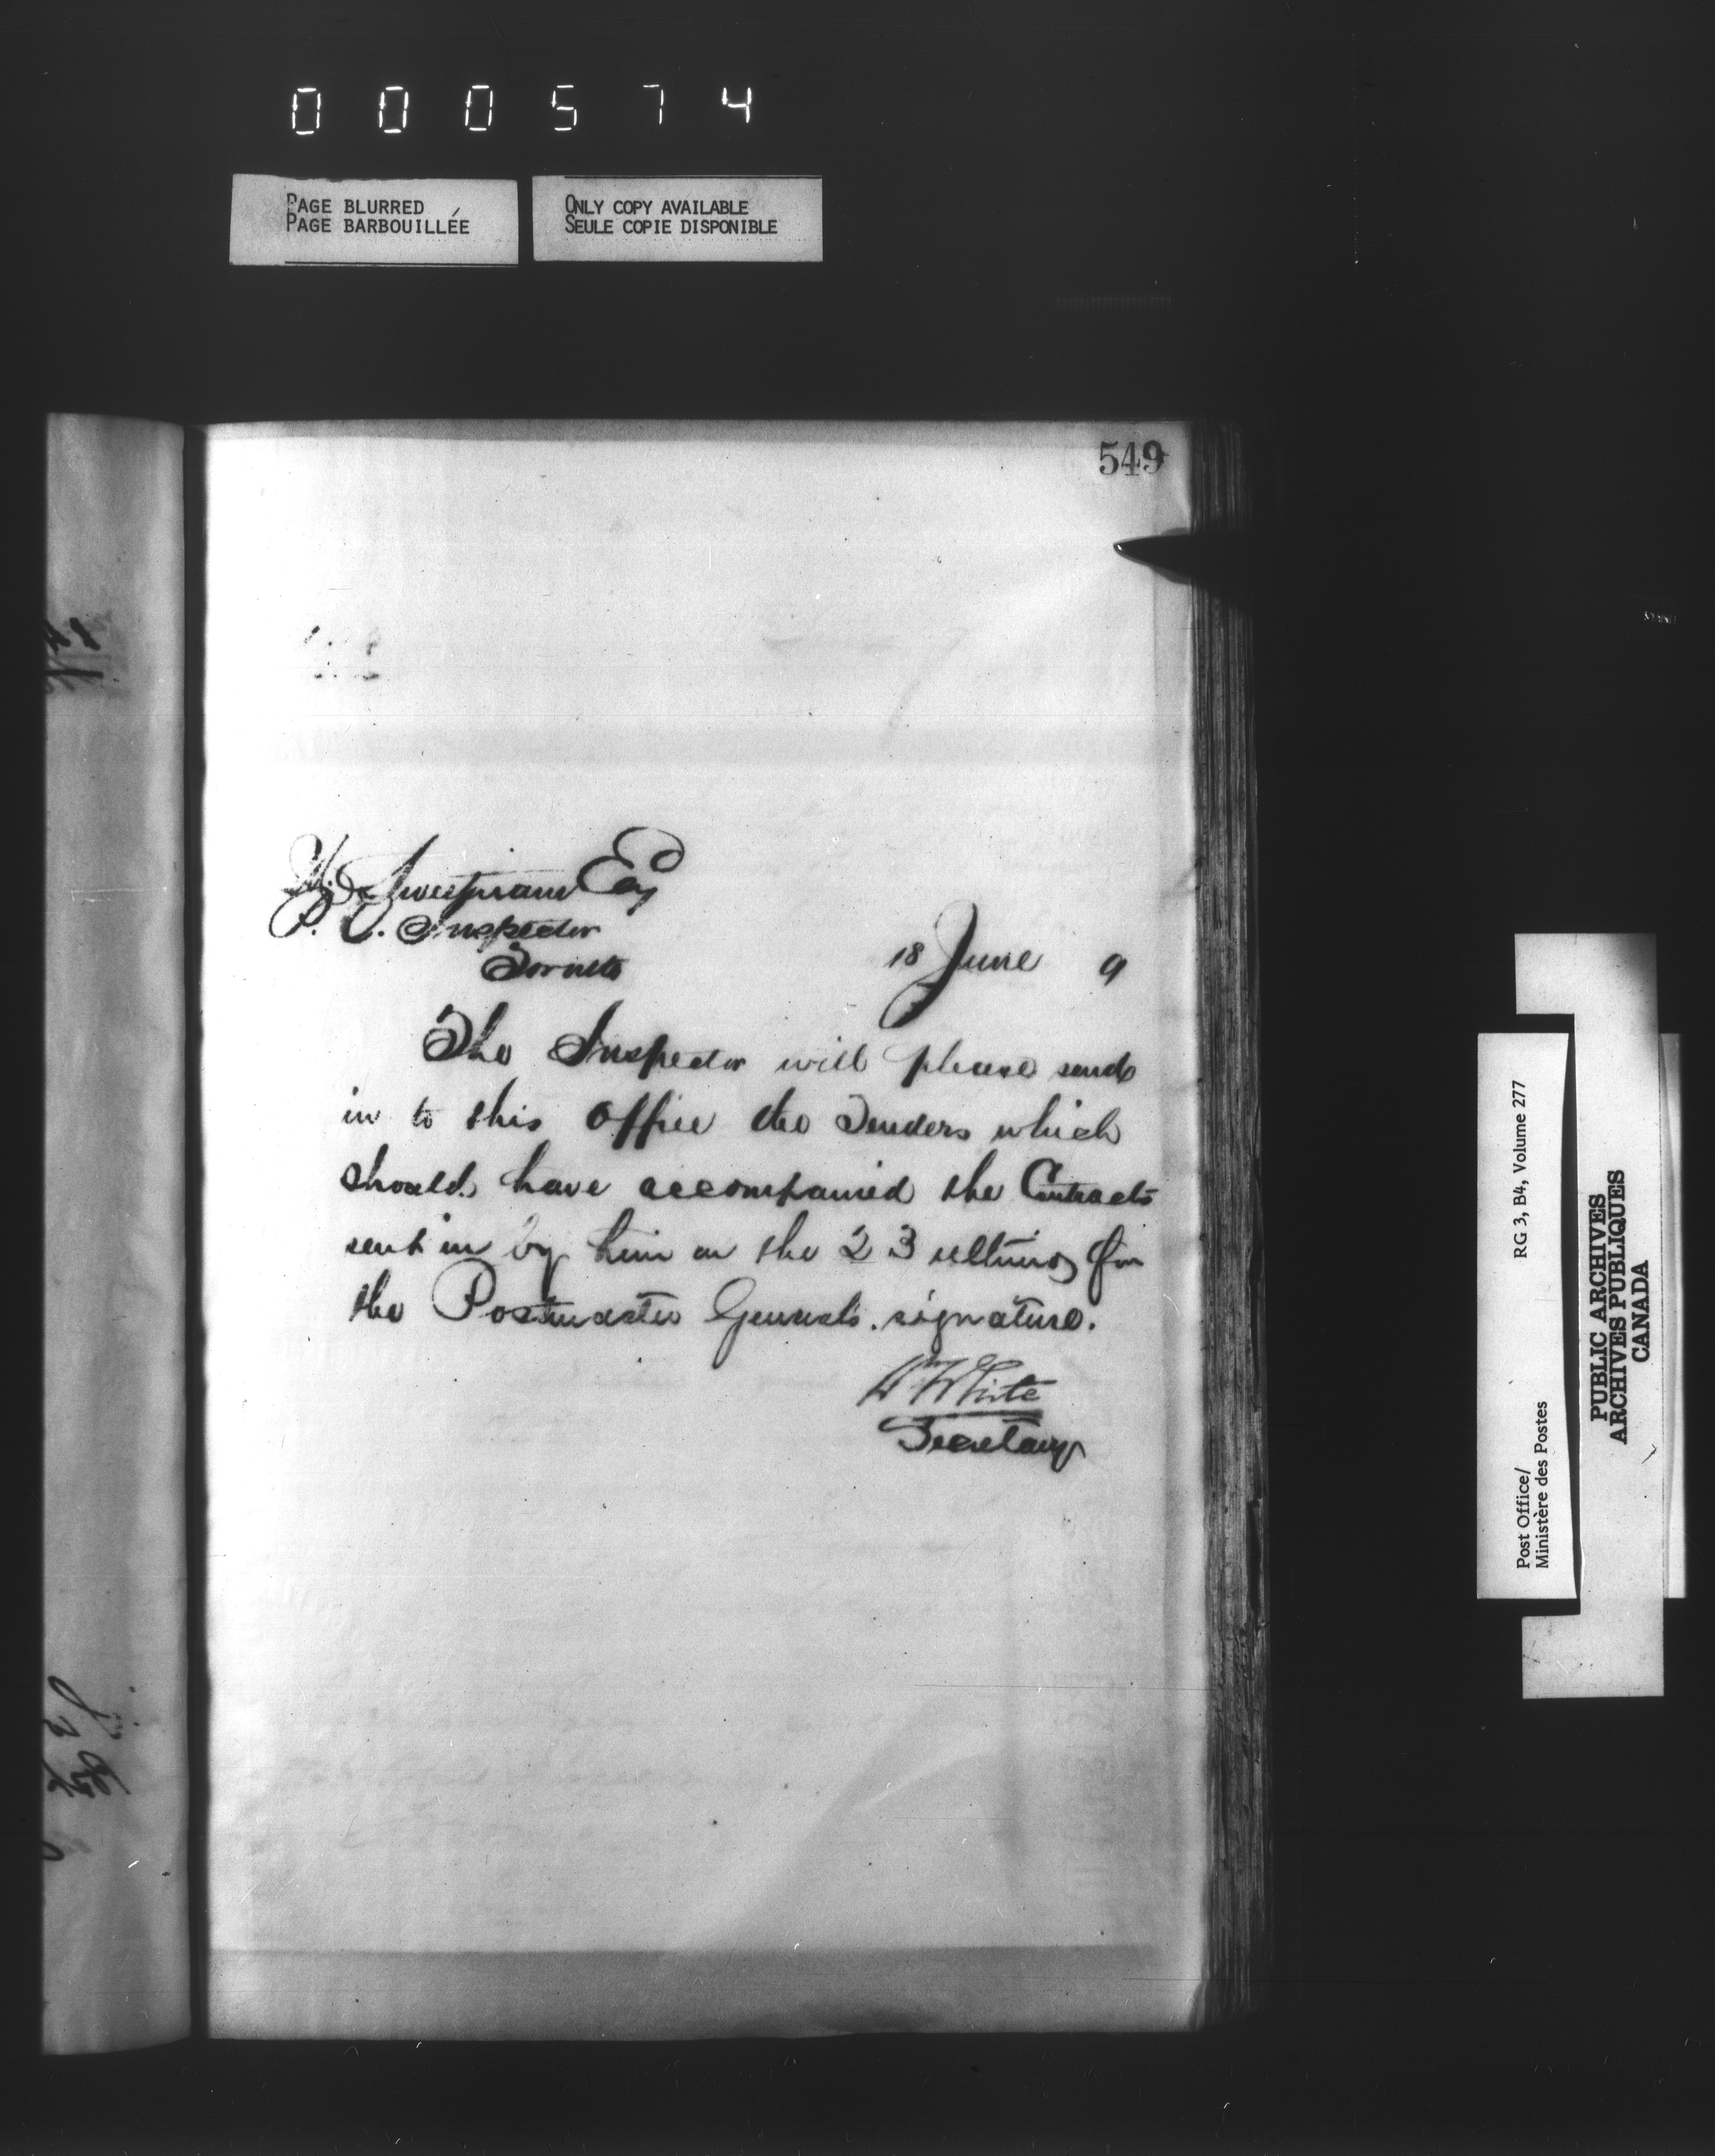 000574
PAGE BLURRED
PAGE BARBOUILLÉE
ONLY COPY AVAILABLE
SEULE COPIE DISPONIBLE
549
M. Sweetnam Esq
P. O. Inspector
Toronto
18 June 9
The Inspector will please send
in to this Office the Tenders which
should have accompanied the Contracts
sent in by him on the 23 ultimo for
the Postmaster General's signature.
Wm White
Secretary
Post Office/
Ministère des Postes
RG 3, B4, Volume 277
PUBLIC ARCHIVES
ARCHIVES PUBLIQUES
CANADA